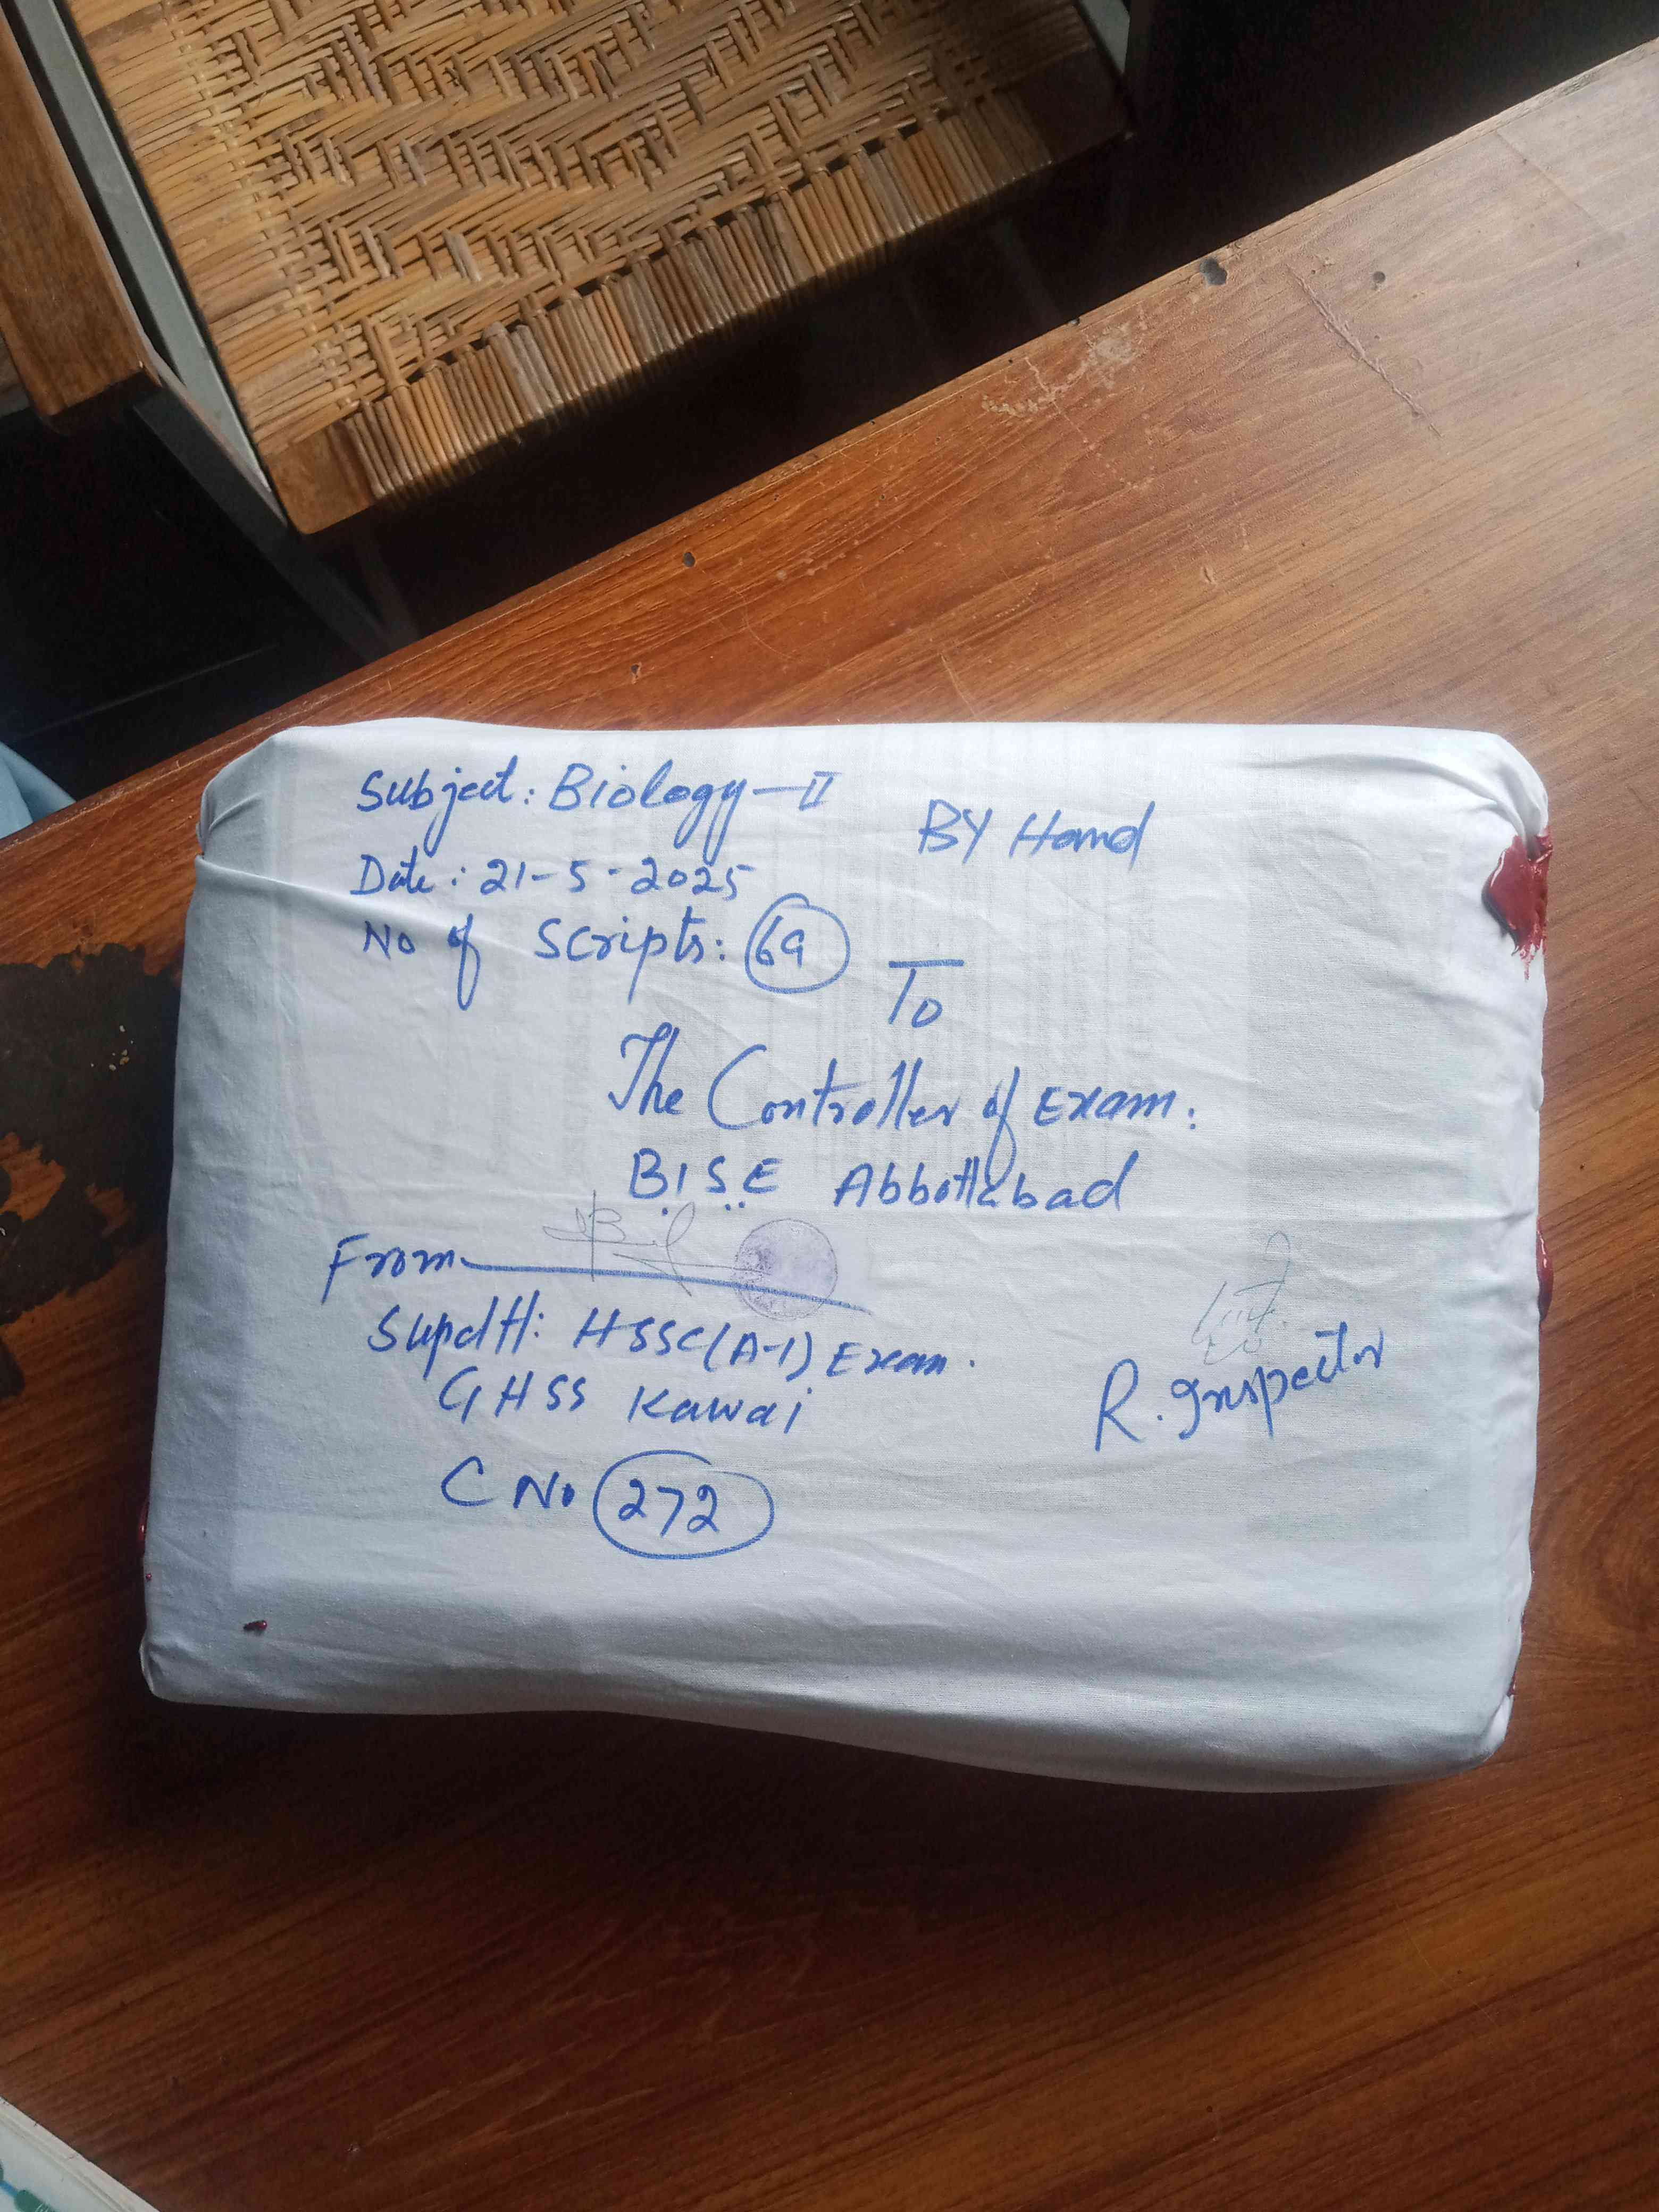 Subject: Biology-II
BY Hand
Date: 21-5-2025
No of Scripts: 69
To
The Controller of Exam:
B.I.S.E Abbottabad
From
Supdtt: HSSC(A-I) Exam.
GHSS Kawai
R. Inspector
C No 272